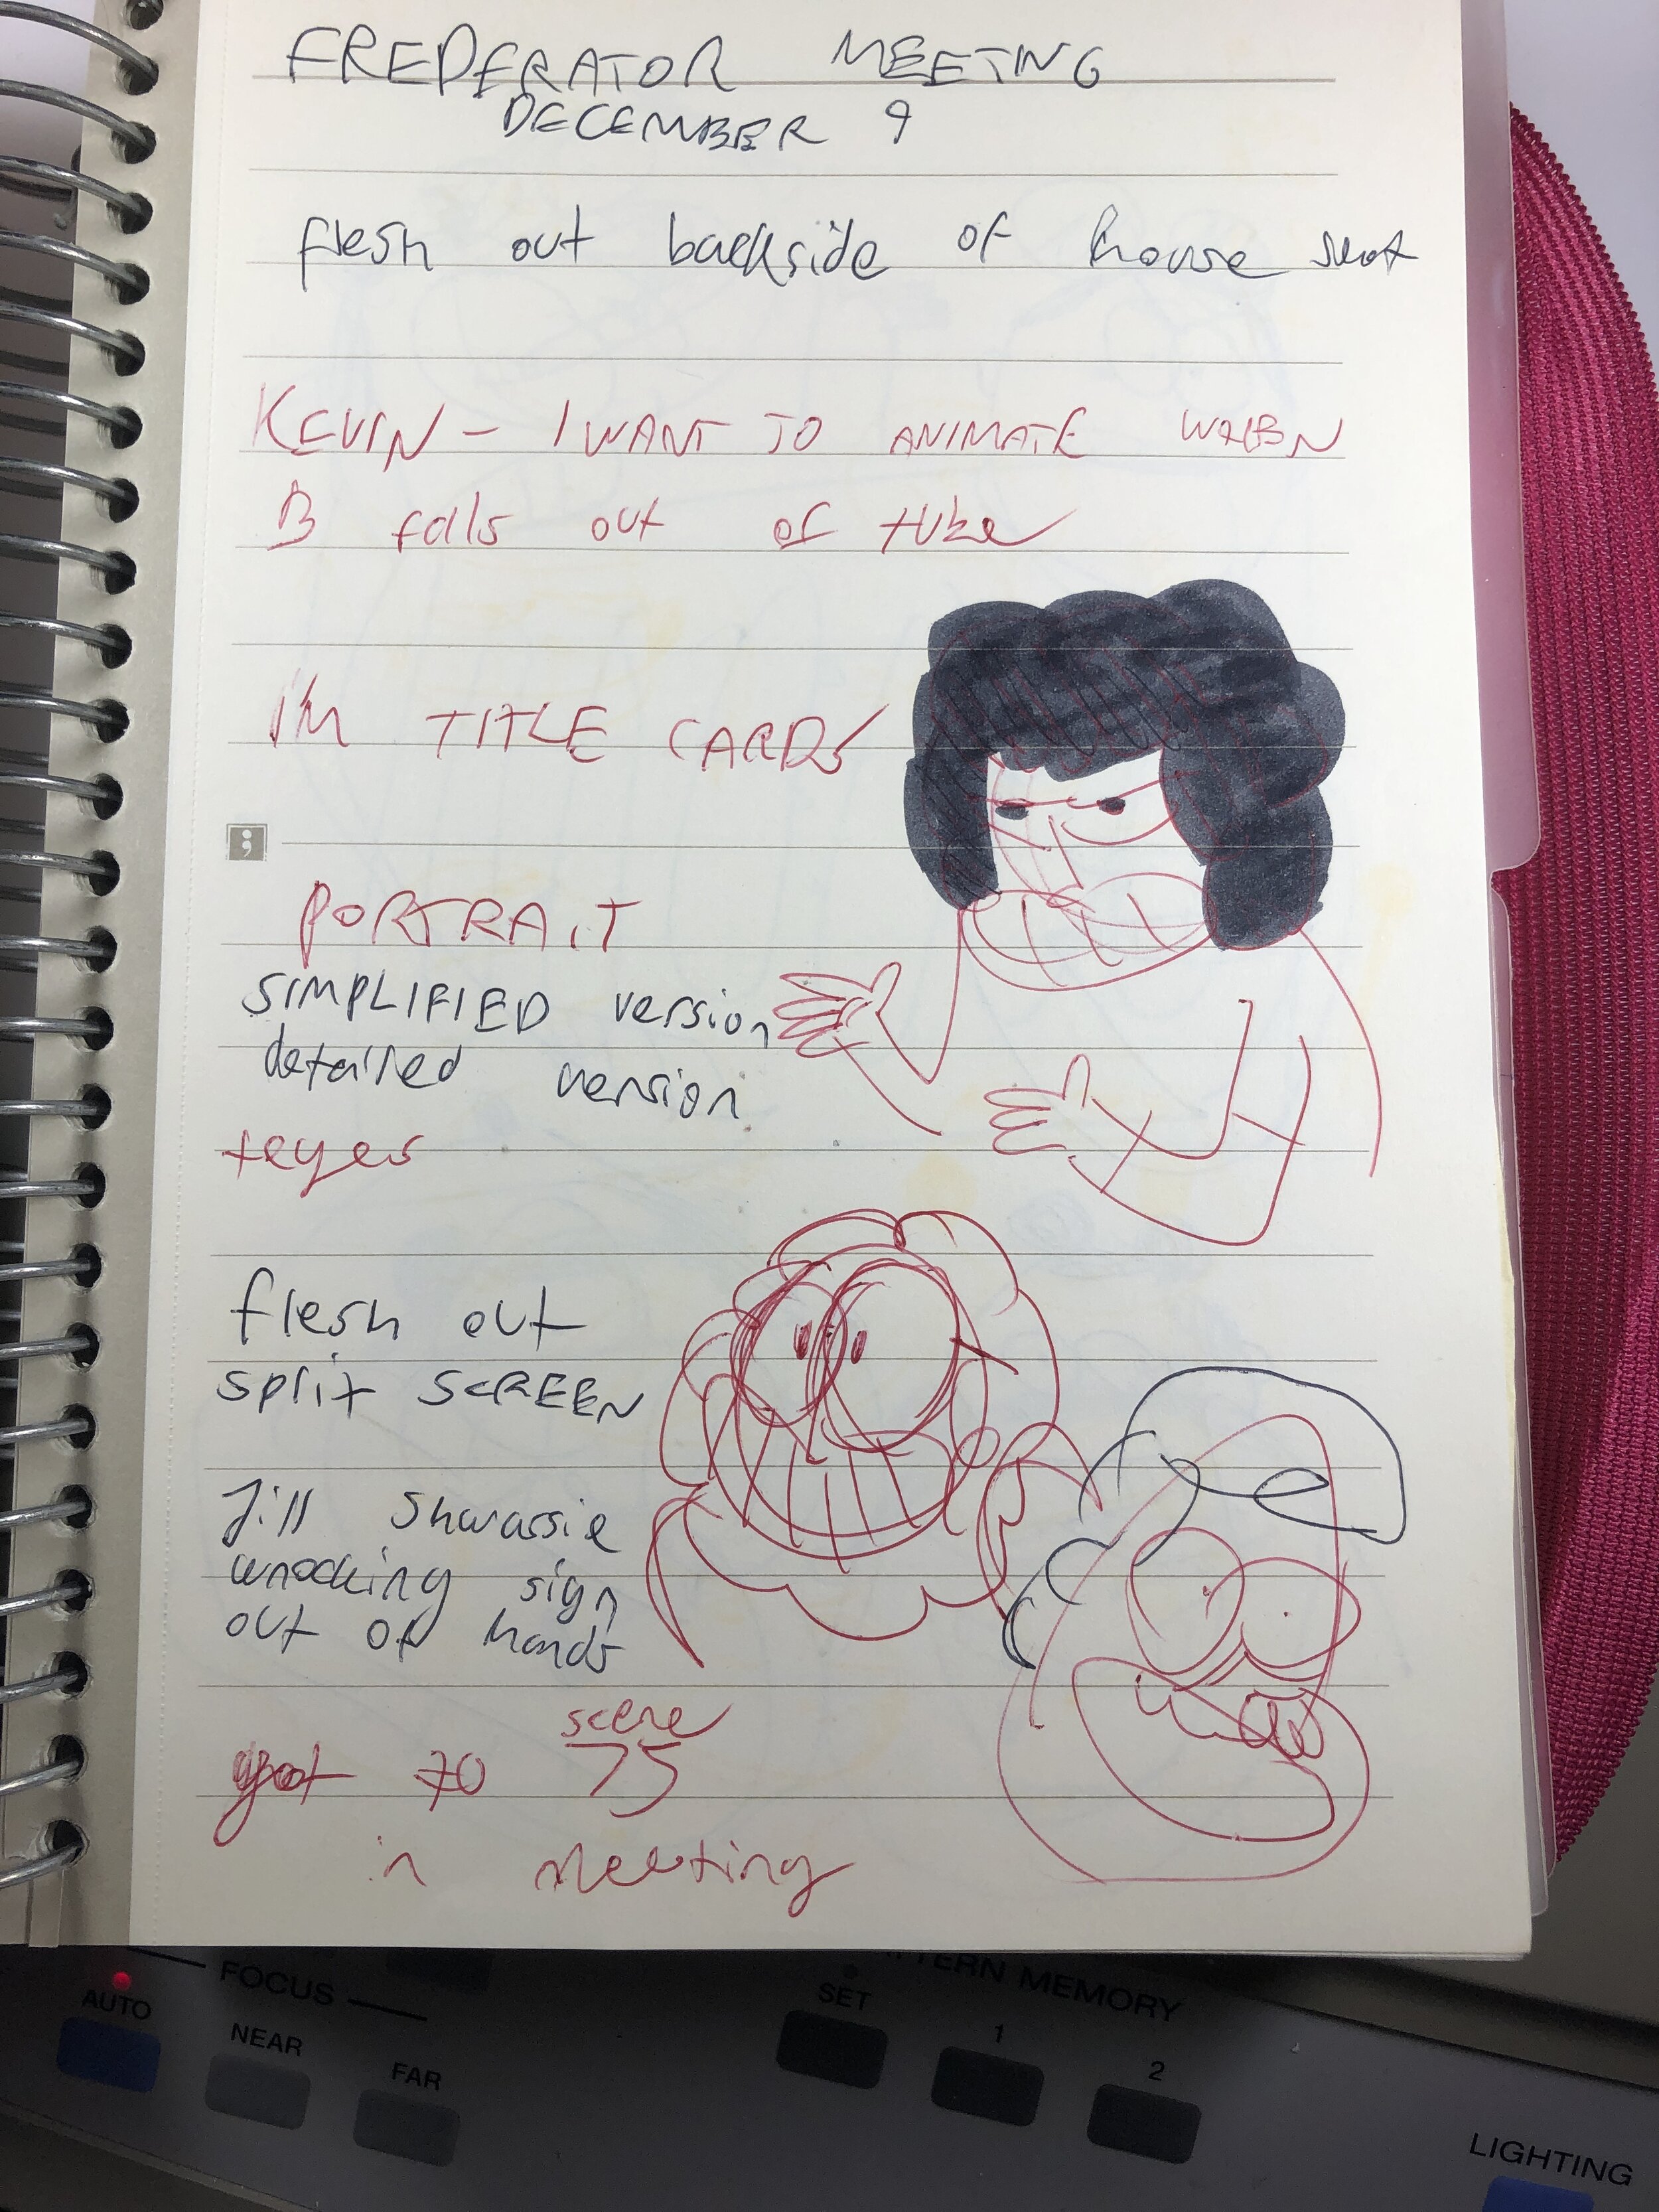 FREDERATOR MEETING
DECEMBER 9
flesh out backside of house shot
KEVIN - I WANT TO ANIMATE WHEN
B falls out of tube
I'M TITLE CARDS
PORTRAIT
SIMPLIFIED version
detailed version
flesh out
split SCREEN
Jill Shwassie
knocking sign
out of hands
got to scene 75
in meeting
FOCUS
AUTO
NEAR
FAR
TERN MEMORY
SET
1
2
LIGHTING